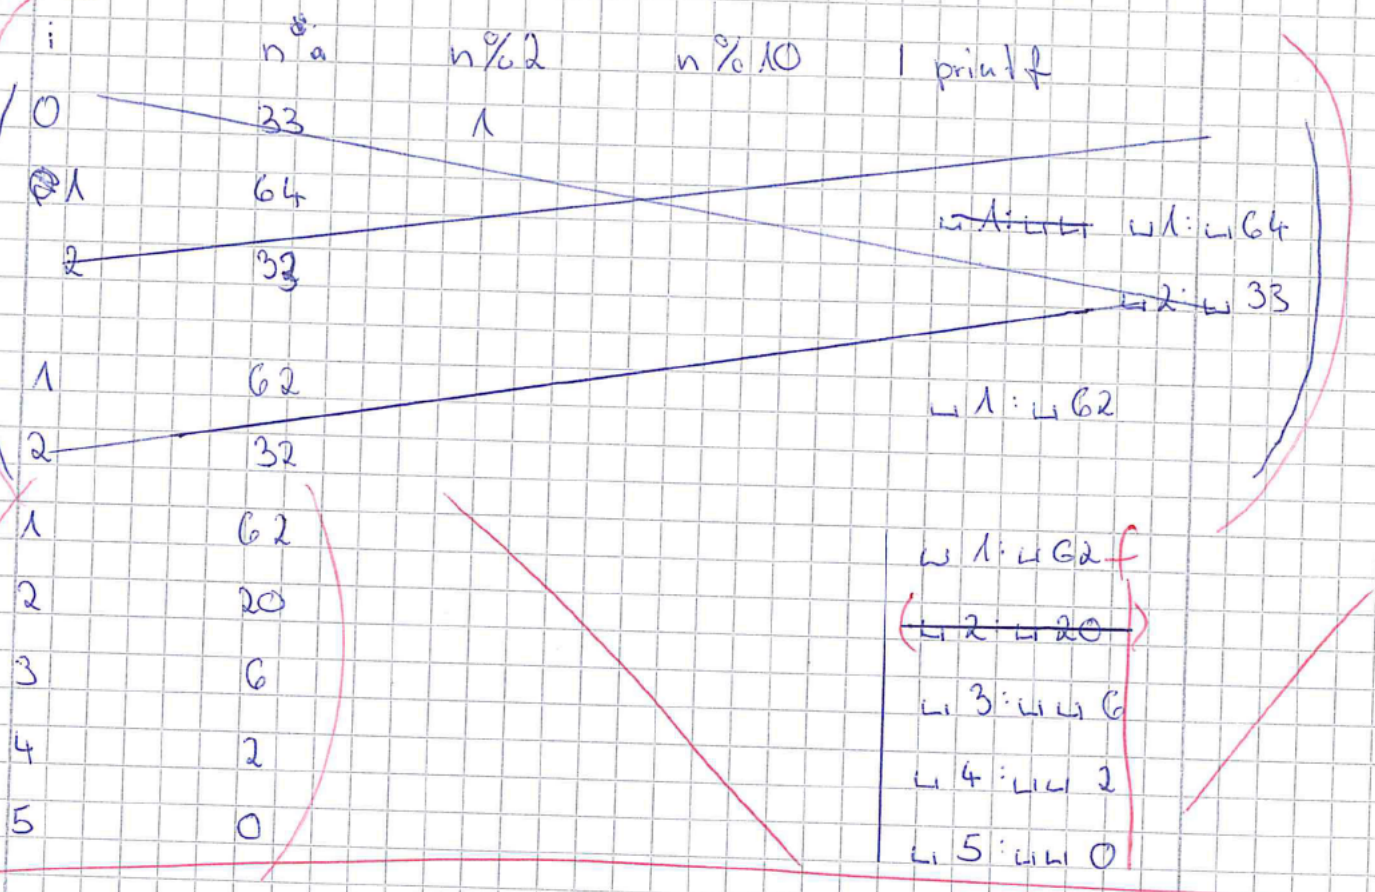 i n a n%2 n%10 | printf
0 33 1
1 64 ␣1:␣␣ ␣1:␣64
2 33 ␣2:␣33
1 62 ␣1:␣62
2 32
1 62 ␣1:␣62 f
2 20 (␣2:␣20)
3 6 ␣3:␣␣6
4 2 ␣4:␣␣2
5 0 ␣5:␣␣0